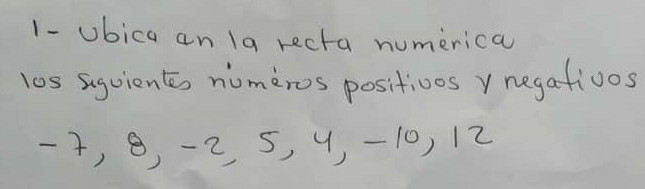 1- Ubica en la recta numérica
los siguientes números positivos y negativos
-7, 8, -2, 5, 4, -10, 12